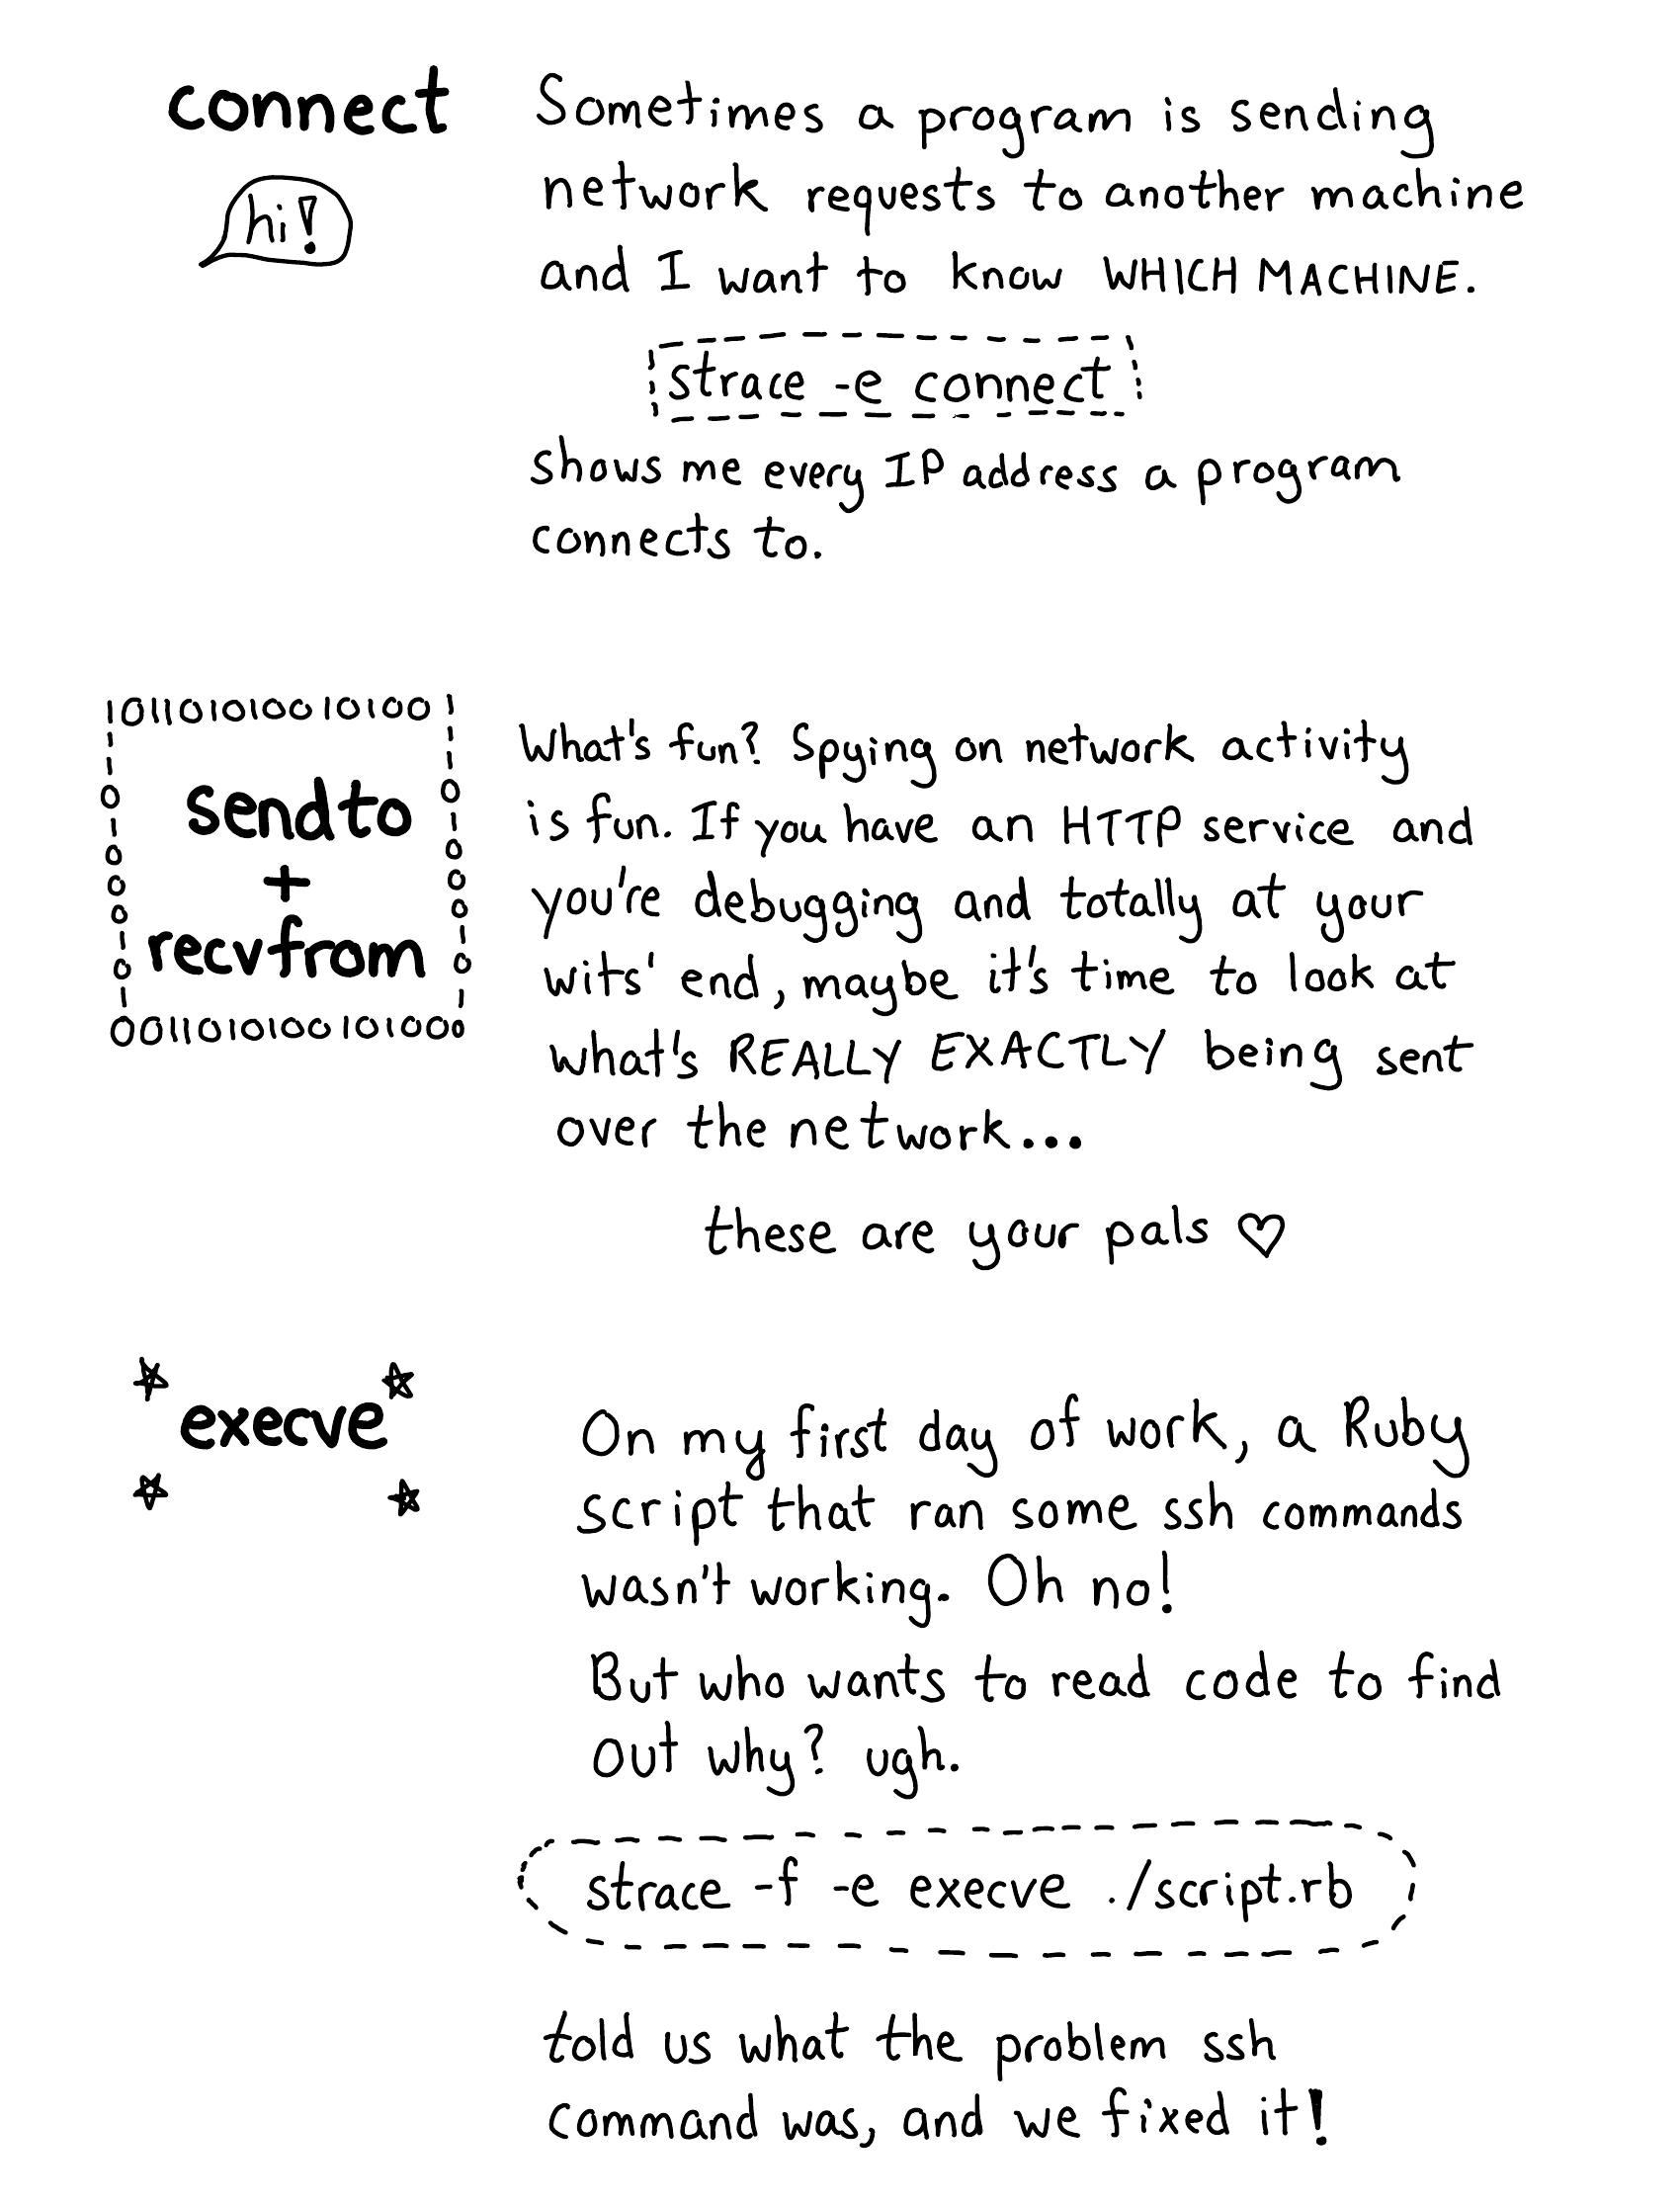 connect
hi!
Sometimes a program is sending
network requests to another machine
and I want to know WHICH MACHINE.
strace -e connect
shows me every IP address a program
connects to.
10110101001010011
sendto
+
recvfrom
00110101001010000
What's fun? Spying on network activity
is fun. If you have an HTTP service and
you're debugging and totally at your
wits' end, maybe it's time to look at
what's REALLY EXACTLY being sent
over the network...
these are your pals ♡
execve
On my first day of work, a Ruby
script that ran some ssh commands
wasn't working. Oh no!
But who wants to read code to find
out why? ugh.
strace -f -e execve ./script.rb
told us what the problem ssh
command was, and we fixed it!